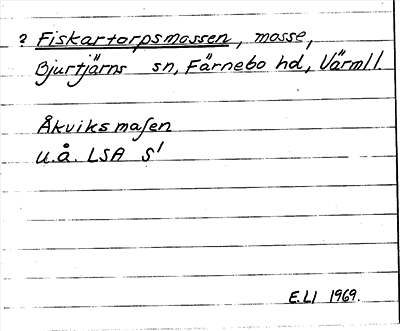 ? Fiskartorpsmossen, mosse,
Bjurtjärns sn, Färnebo hd, Värml l.
Åkviks maſen
u.å. LSA S'
E.LI 1969.